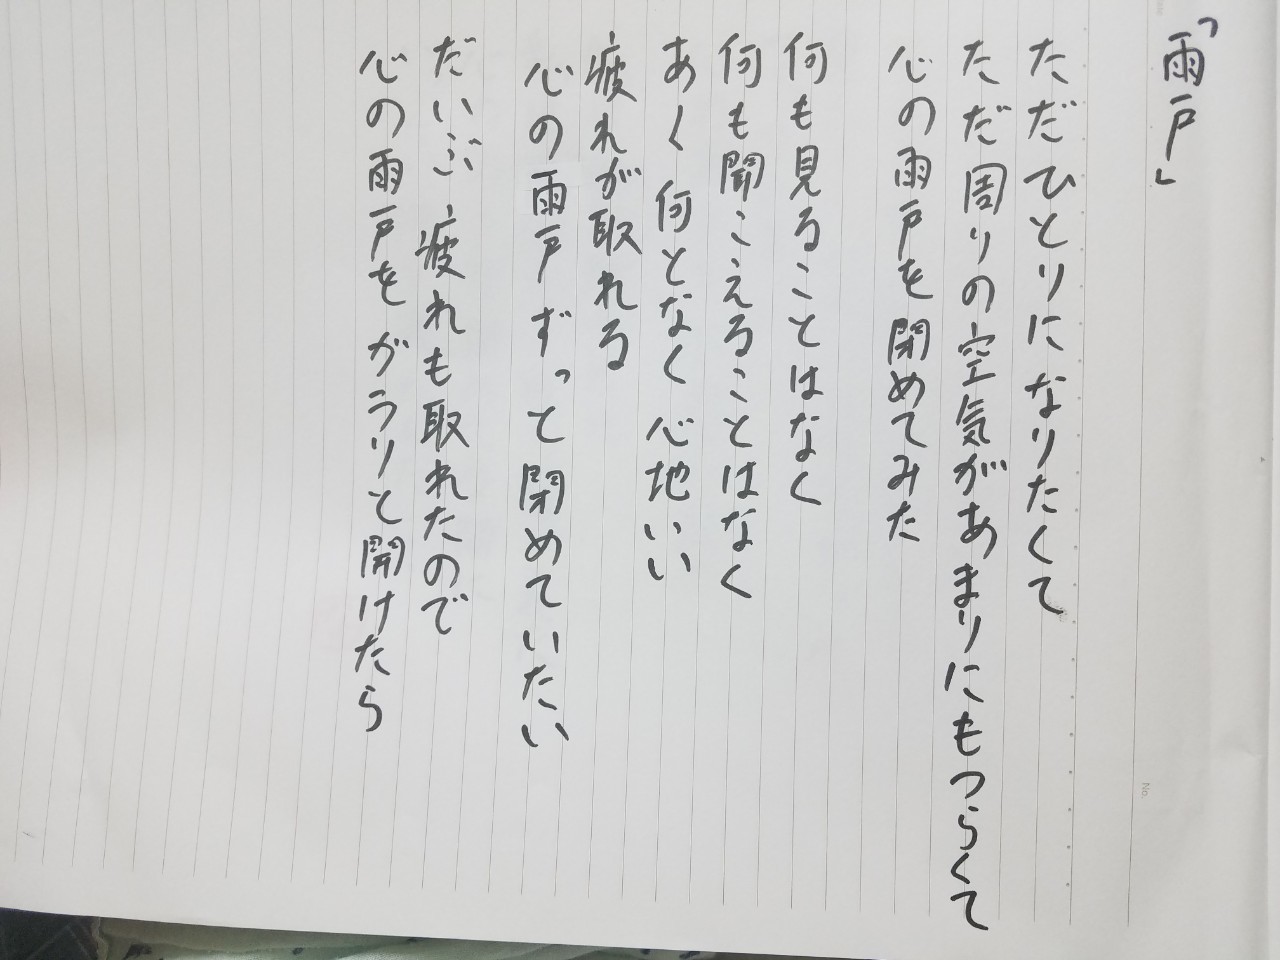 「雨戸」
ただひとりになりたくて
ただ周りの空気があまりにもつらくて
心の雨戸を閉めてみた
何も見ることはなく
何も聞こえることはなく
あく 何となく 心地いい
疲れが取れる
心の雨戸ずっと閉めていたい
だいぶ疲れも取れたので
心の雨戸をがらりと開けたら
No.